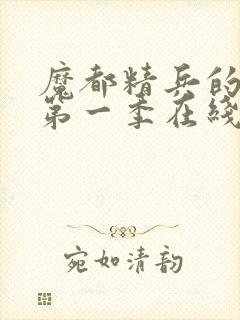 魔都精兵的
第一季在线
宛如清韵